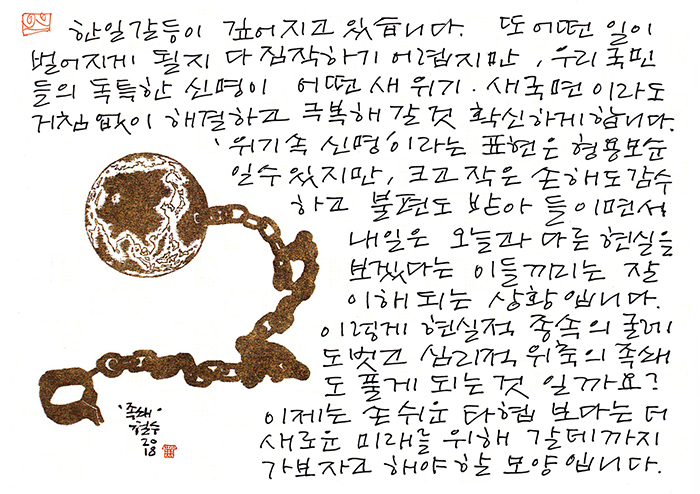 한일갈등이 깊어지고 있습니다. 또 어떤 일이
벌어지게 될지 다 짐작하기 어렵지만, 우리 국민
들의 독특한 신명이 어떤 새 위기. 새국면 이라도
거침없이 해결하고 극복해 갈 것 확신하게 합니다.
'위기속 신명'이라는 표현은 형용모순
일수 있지만, 크고 작은 손해도 감수
하고 불편도 받아 들이면서
내일은 오늘과 다른 현실을
보겠다는 이들끼리는 잘
이해 되는 상황 입니다.
이렇게 현실적 종속의 굴레
도 벗고 심리적 위축의 족쇄
도 풀게 되는 것 일까요?
이제는 손쉬운 타협 보다는 더
새로운 미래를 위해 갈데까지
가보자고 해야 할 모양 입니다.
'족쇄'
철수
20
18